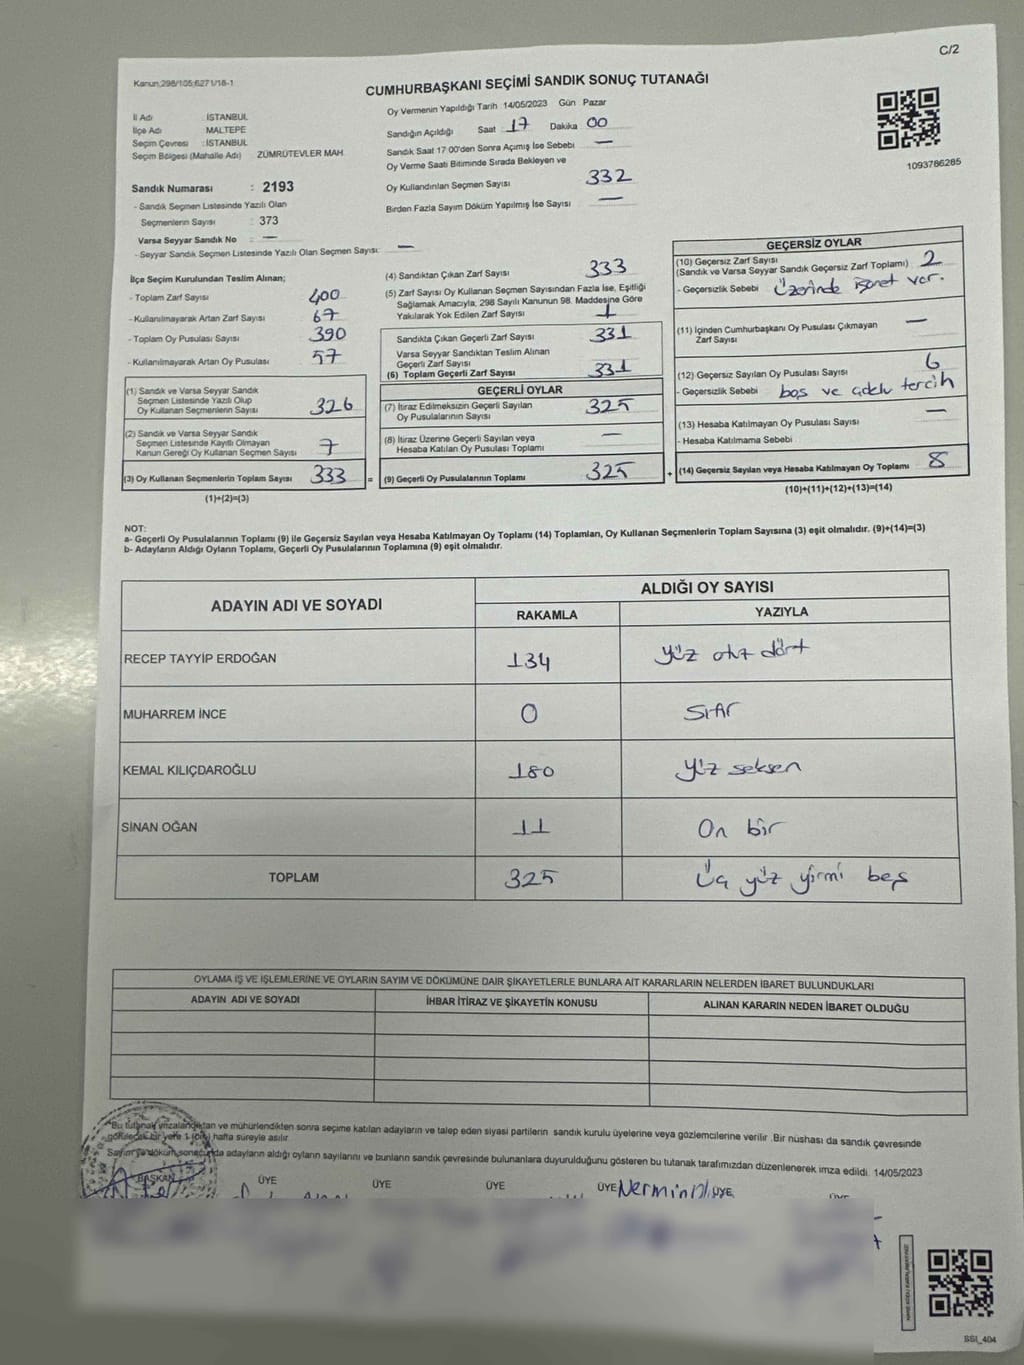 C/2
Kanun;298/105;6271/18-1
CUMHURBAŞKANI SEÇİMİ SANDIK SONUÇ TUTANAĞI
İl Adı : İSTANBUL
İlçe Adı MALTEPE
Seçim Çevresi : İSTANBUL
Seçim Bölgesi (Mahalle Adı) ZÜMRÜTEVLER MAH.
Sandık Numarası : 2193
- Sandık Seçmen Listesinde Yazılı Olan
Seçmenlerin Sayısı : 373
Varsa Seyyar Sandık No : —
- Seyyar Sandık Seçmen Listesinde Yazılı Olan Seçmen Sayısı: —
Oy Vermenin Yapıldığı Tarih 14/05/2023 Gün Pazar
Sandığın Açıldığı Saat 17 Dakika 00
Sandık Saat 17:00'den Sonra Açımış İse Sebebi —
Oy Verme Saati Bitiminde Sırada Bekleyen ve
Oy Kullandırılan Seçmen Sayısı 332
Birden Fazla Sayım Döküm Yapılmış İse Sayısı —
1093786285
İlçe Seçim Kurulundan Teslim Alınan;
- Toplam Zarf Sayısı 400
- Kullanılmayarak Artan Zarf Sayısı : 67
- Toplam Oy Pusulası Sayısı 390
- Kullanılmayarak Artan Oy Pusulası : 57
(1) Sandık ve Varsa Seyyar Sandık
Seçmen Listesinde Yazılı Olup
Oy Kullanan Seçmenlerin Sayısı 326
(2) Sandık ve Varsa Seyyar Sandık
Seçmen Listesinde Kayıtlı Olmayan
Kanun Gereği Oy Kullanan Seçmen Sayısı 7
(3) Oy Kullanan Seçmenlerin Toplam Sayısı 333
(1)+(2)=(3)
(4) Sandıktan Çıkan Zarf Sayısı 333
(5) Zarf Sayısı Oy Kullanan Seçmen Sayısından Fazla İse, Eşitliği
Sağlamak Amacıyla, 298 Sayılı Kanunun 98. Maddesine Göre
Yakılarak Yok Edilen Zarf Sayısı 1
Sandıkta Çıkan Geçerli Zarf Sayısı 331
Varsa Seyyar Sandıktan Teslim Alınan
Geçerli Zarf Sayısı
(6) Toplam Geçerli Zarf Sayısı 331
GEÇERLİ OYLAR
(7) İtiraz Edilmeksizin Geçerli Sayılan
Oy Pusulalarının Sayısı 325
(8) İtiraz Üzerine Geçerli Sayılan veya
Hesaba Katılan Oy Pusulası Toplamı —
= (9) Geçerli Oy Pusulalarının Toplamı 325
GEÇERSİZ OYLAR
(10) Geçersiz Zarf Sayısı
(Sandık ve Varsa Seyyar Sandık Geçersiz Zarf Toplamı) 2
- Geçersizlik Sebebi üzerinde işaret var.
(11) İçinden Cumhurbaşkanı Oy Pusulası Çıkmayan
Zarf Sayısı —
(12) Geçersiz Sayılan Oy Pusulası Sayısı 6
- Geçersizlik Sebebi boş ve tercih
(13) Hesaba Katılmayan Oy Pusulası Sayısı —
- Hesaba Katılmama Sebebi
+ (14) Geçersiz Sayılan veya Hesaba Katılmayan Oy Toplamı 8
(10)+(11)+(12)+(13)=(14)
NOT:
a- Geçerli Oy Pusulalarının Toplamı (9) ile Geçersiz Sayılan veya Hesaba Katılmayan Oy Toplamı (14) Toplamları, Oy Kullanan Seçmenlerin Toplam Sayısına (3) eşit olmalıdır. (9)+(14)=(3)
b- Adayların Aldığı Oyların Toplamı, Geçerli Oy Pusulalarının Toplamına (9) eşit olmalıdır.
ADAYIN ADI VE SOYADI ALDIĞI OY SAYISI
RAKAMLA YAZIYLA
RECEP TAYYİP ERDOĞAN 134 yüz otuz dört
MUHARREM İNCE 0 sıfır
KEMAL KILIÇDAROĞLU 180 yüz seksen
SİNAN OĞAN 11 On bir
TOPLAM 325 Üç yüz yirmi beş
OYLAMA İŞ VE İŞLEMLERİNE VE OYLARIN SAYIM VE DÖKÜMÜNE DAİR ŞİKAYETLERLE BUNLARA AİT KARARLARIN NELERDEN İBARET BULUNDUKLARI
ADAYIN ADI VE SOYADI İHBAR İTİRAZ VE ŞİKAYETİN KONUSU ALINAN KARARIN NEDEN İBARET OLDUĞU
Bu tutanak imzalandıktan ve mühürlendikten sonra seçime katılan adayların ve talep eden siyasi partilerin sandık kurulu üyelerine veya gözlemcilerine verilir .Bir nüshası da sandık çevresinde
görülecek bir yere 1 (bir) hafta süreyle asılır.
Sayım ve döküm sonucunda adayların aldığı oyların sayılarını ve bunların sandık çevresinde bulunanlara duyurulduğunu gösteren bu tutanak tarafımızdan düzenlenerek imza edildi. 14/05/2023
BAŞKAN ÜYE ÜYE ÜYE ÜYE ÜYE ÜYE
SSI_404